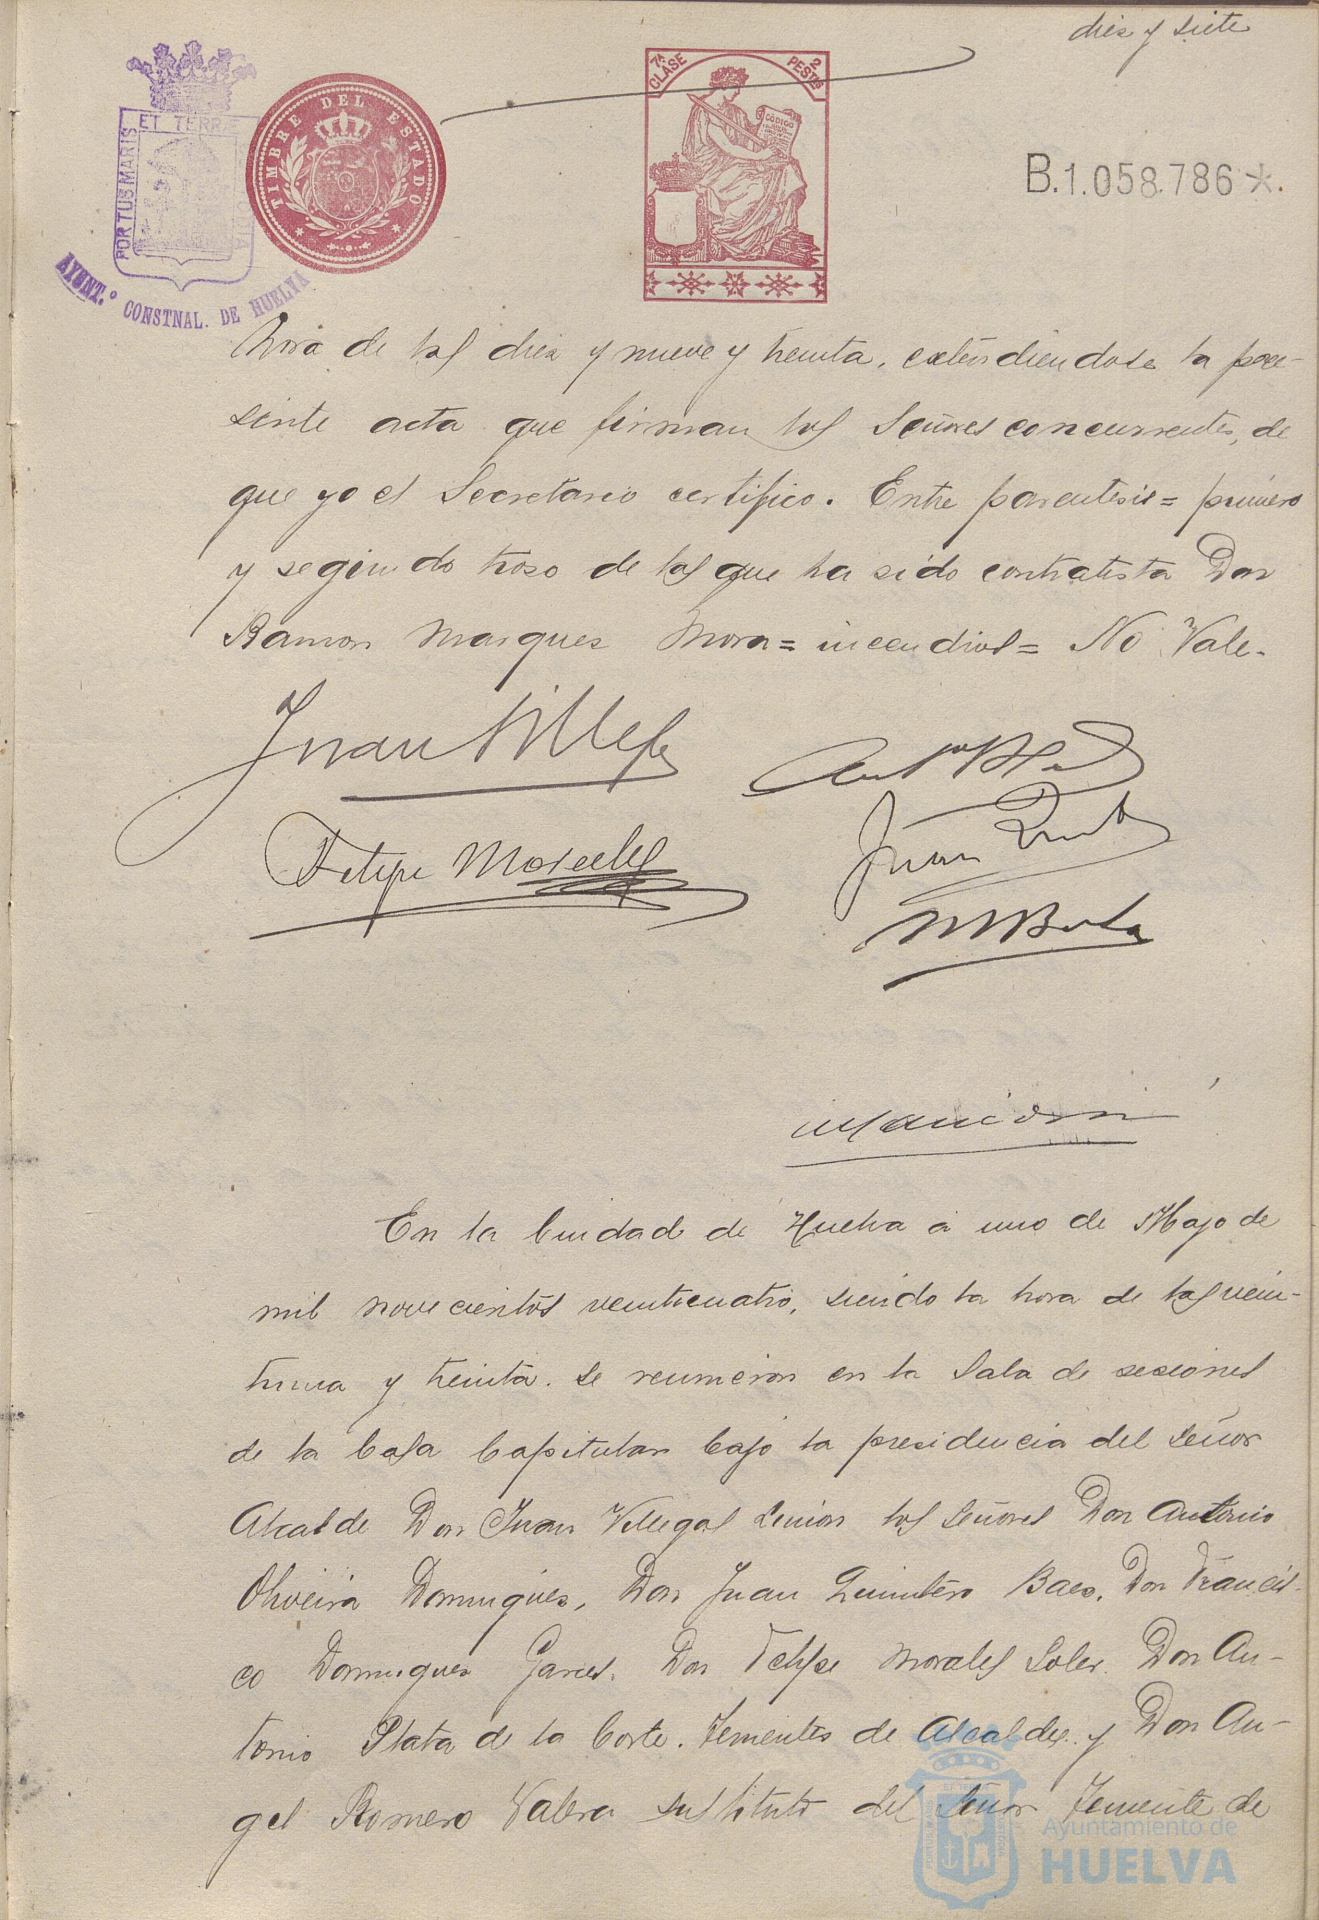 diez y siete
7ª CLASE
2 PESTAS
CÓDIGO
TIMBRE DEL ESTADO
PORTUS MARIS ET TERRÆ
AYUNT.º CONSTNAL. DE HUELVA
B.1.058.786 *.
hora de las diez y nueve y treinta, extendiendose la pre-
sente acta que firman los Señores concurrentes, de
que yo el Secretario certifico. Entre parentesis = primero
y segundo trozo de los que ha sido contratista Don
Ramon Marquez Mora = incendios = No Vale.
Juan Villegas
Felipe Morales
Juan Quintero
En la Ciudad de Huelva a uno de Mayo de
mil novecientos veinticuatro, siendo la hora de las vein-
tiuna y treinta. se reunieron en la Sala de sesiones
de la Casa Capitular bajo la presidencia del Señor
Alcalde Don Juan Villegas los Señores Don Antonio
Oliveira Dominguez, Don Juan Quintero Baez, Don Francis-
co Dominguez Garces, Don Felipe Morales Soler. Don An-
tonio Plata de la Corte. Tenientes de Alcalde y Don An-
gel Romero Valera sustituto del Señor Teniente de
Ayuntamiento de
HUELVA